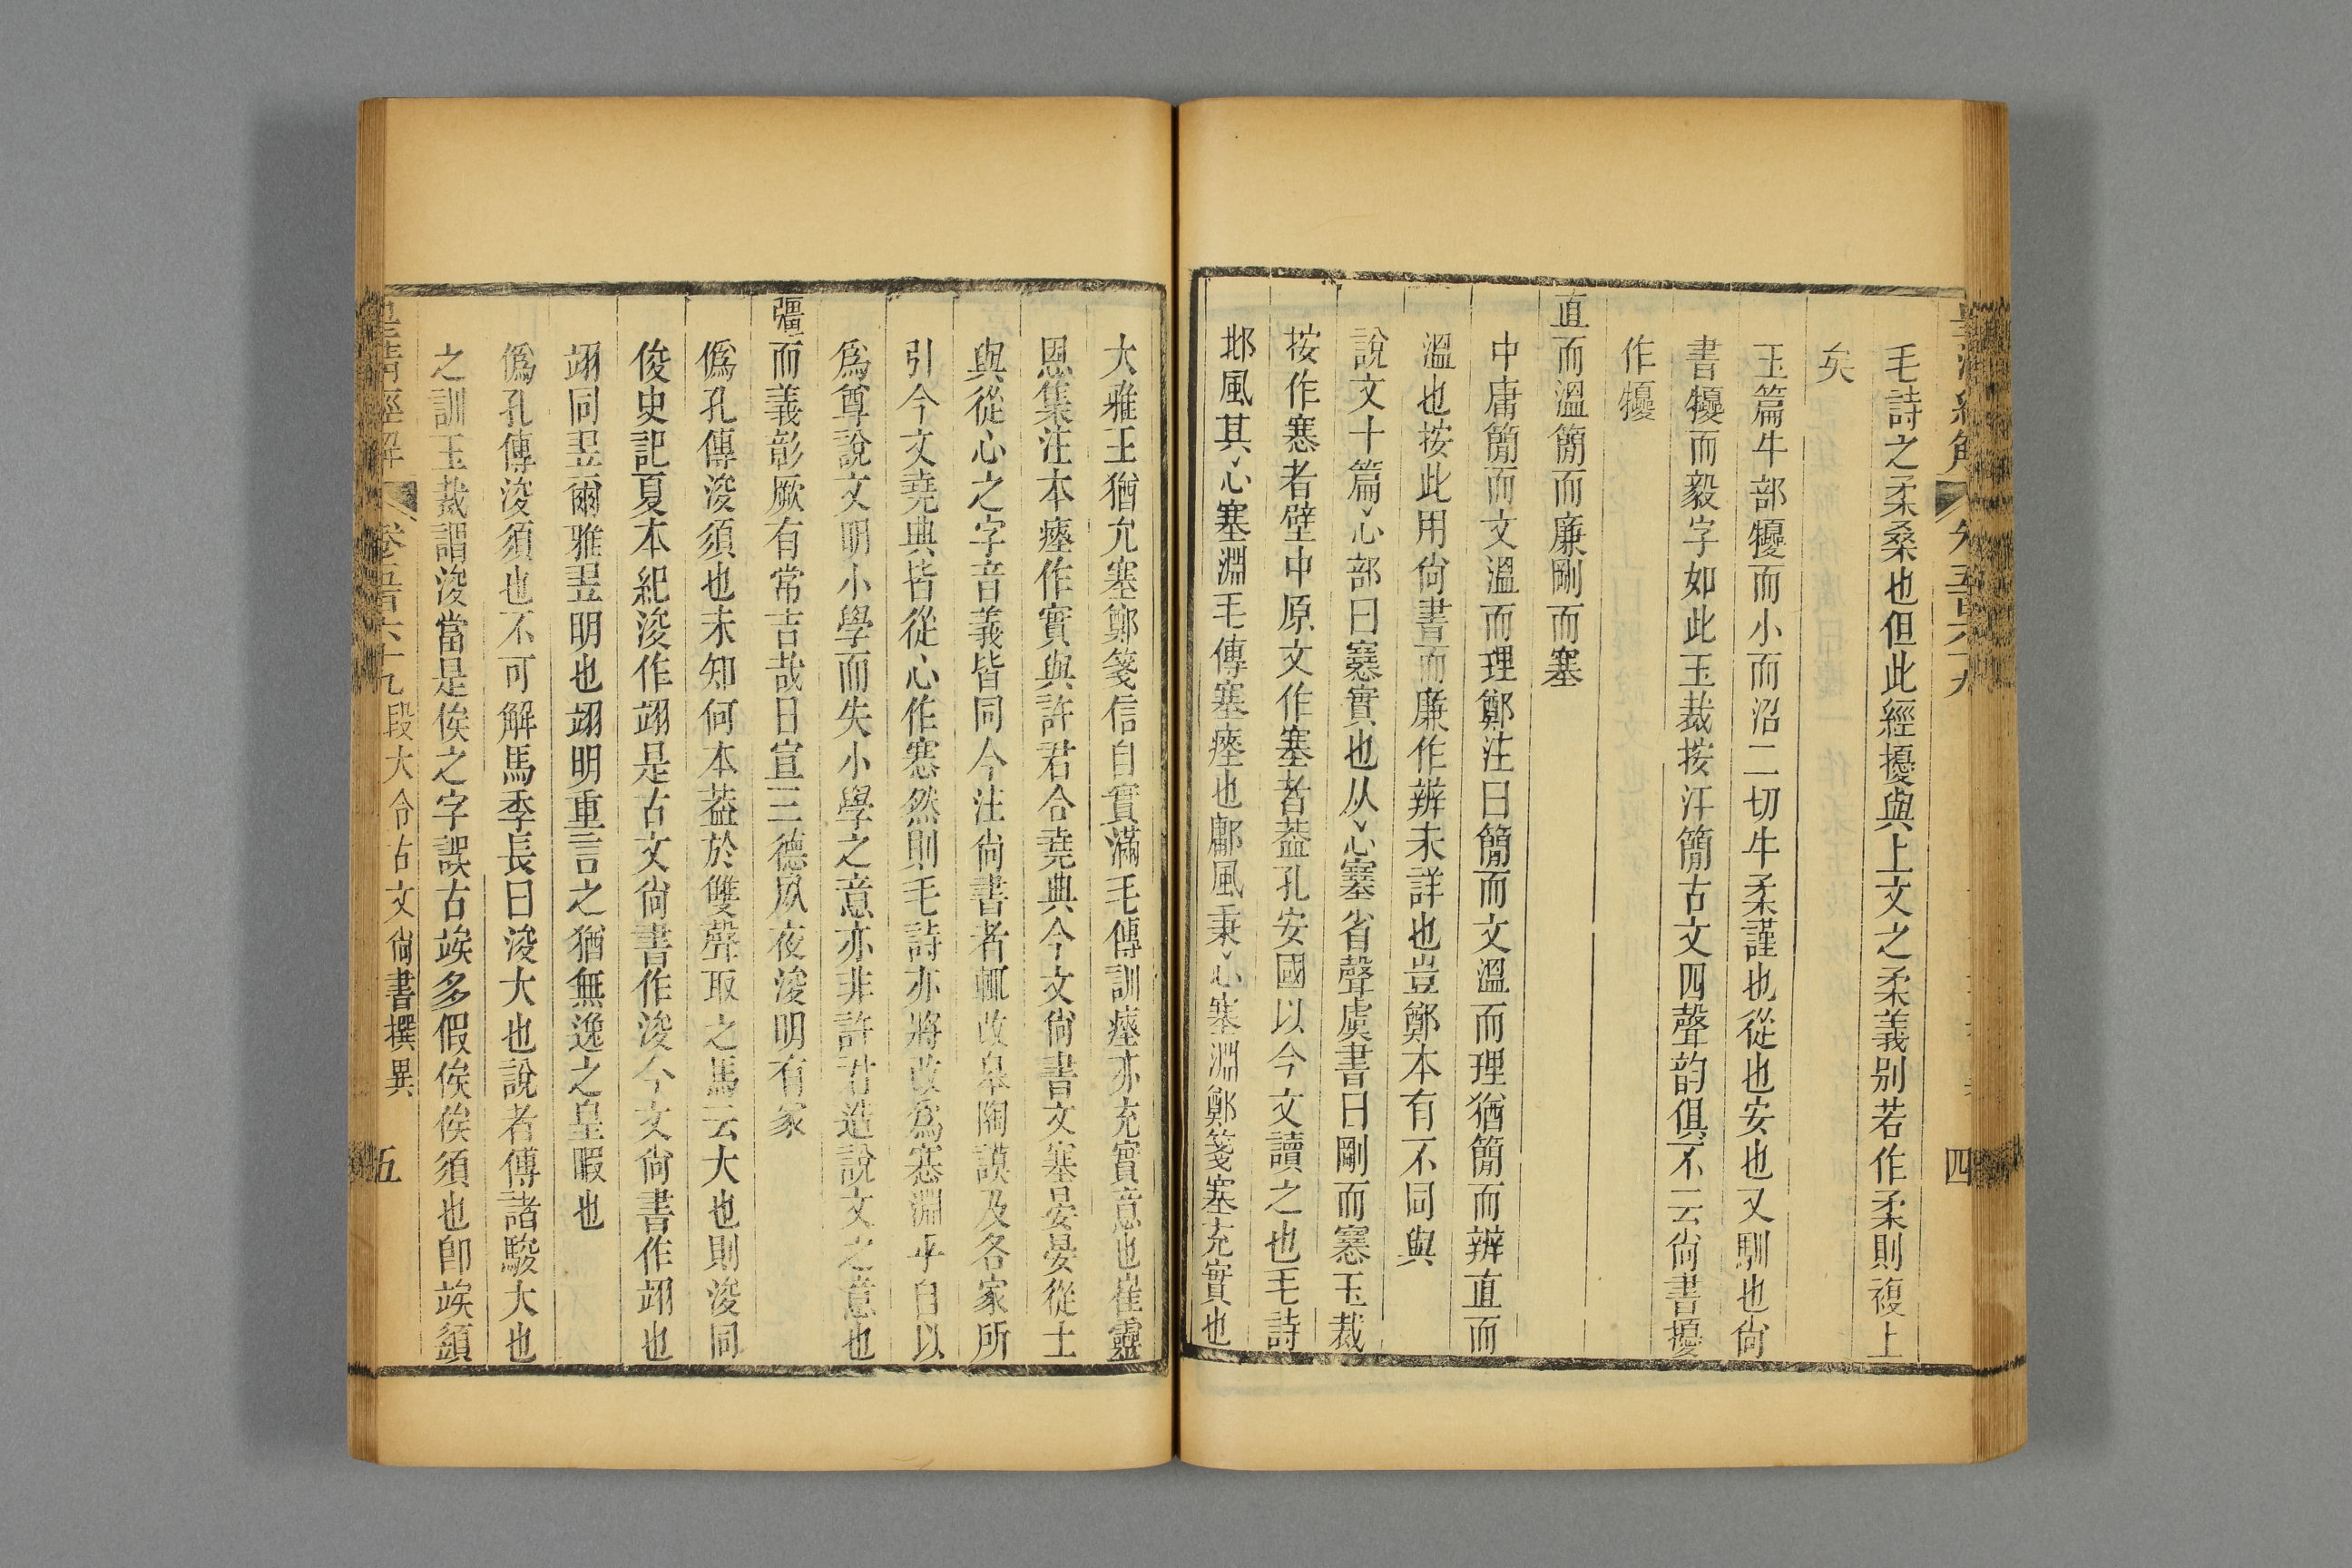 毛詩之柔桑也但此經擾與上文之柔義别若作柔則複上
矣
玉篇牛部犪而小而沼二切牛柔謹也從也安也又馴也尙
書犪而毅字如此玉裁按汗簡古文四聲韵俱不云尙書擾
作犪
直而溫簡而廉剛而塞
中庸簡而文溫而理鄭注曰簡而文溫而理猶簡而辨直而
溫也按此用尙書而廉作辨未詳也豈鄭本有不同與
說文十篇心部曰𡫳實也从心塞省聲虞書曰剛而𡫳玉裁
按作𡫳者壁中原文作塞者葢孔安國以今文讀之也毛詩
邶風其心塞淵毛傳塞瘞也鄘風秉心塞淵鄭箋塞充實也
大雅王猶允塞鄭箋信自實滿毛傳訓瘞亦充實意也崔靈
恩集注本瘞作實與許君合堯典今文尙書文塞晏晏從土
與從心之字音義皆同今注尙書者輒改皋陶謨及各家所
引今文堯典皆從心作𡫳然則毛詩亦將改爲𡫳淵乎自以
爲尊說文明小學而失小學之意亦非許君造說文之意也
彊而義彰厥有常吉哉日宣三德夙夜浚明有家
僞孔傳浚須也未知何本葢於雙聲取之馬云大也則浚同
俊史記夏本紀浚作翊是古文尙書作浚今文尙書作翊也
翊同翌爾雅翌明也翊明重言之猶無逸之皇暇也
僞孔傳浚須也不可解馬季長曰浚大也說者傅諸駿大也
之訓玉裁謂浚當是俟之字誤古竢多假俟俟須也卽竢䇓
皇清經解 卷五百六十九 段大令古文尙書撰異 五
皇清經解 卷五百六十九 四